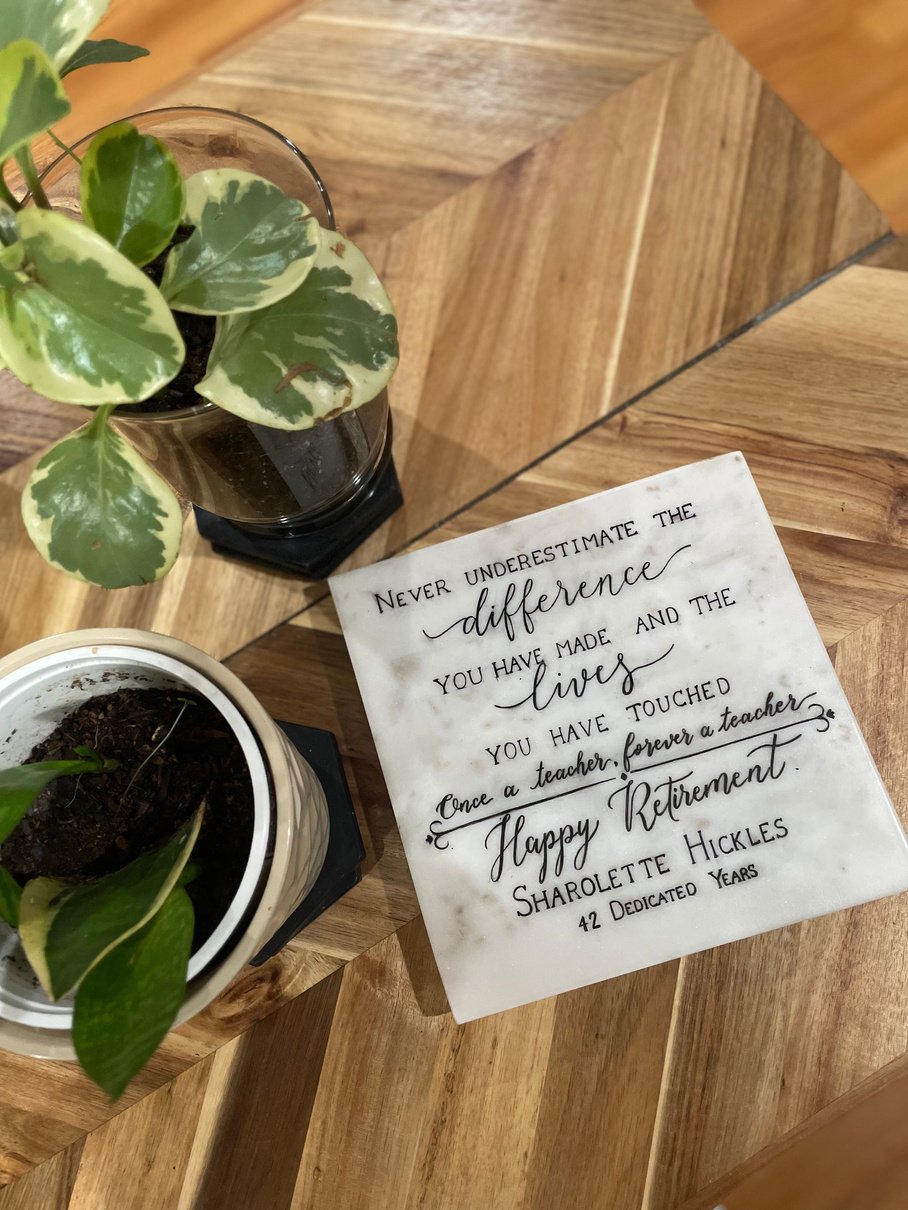 NEVER UNDERESTIMATE THE
difference
YOU HAVE MADE AND THE
lives
YOU HAVE TOUCHED
Once a teacher, forever a teacher
Happy Retirement.
SHAROLETTE HICKLES
42 DEDICATED YEARS